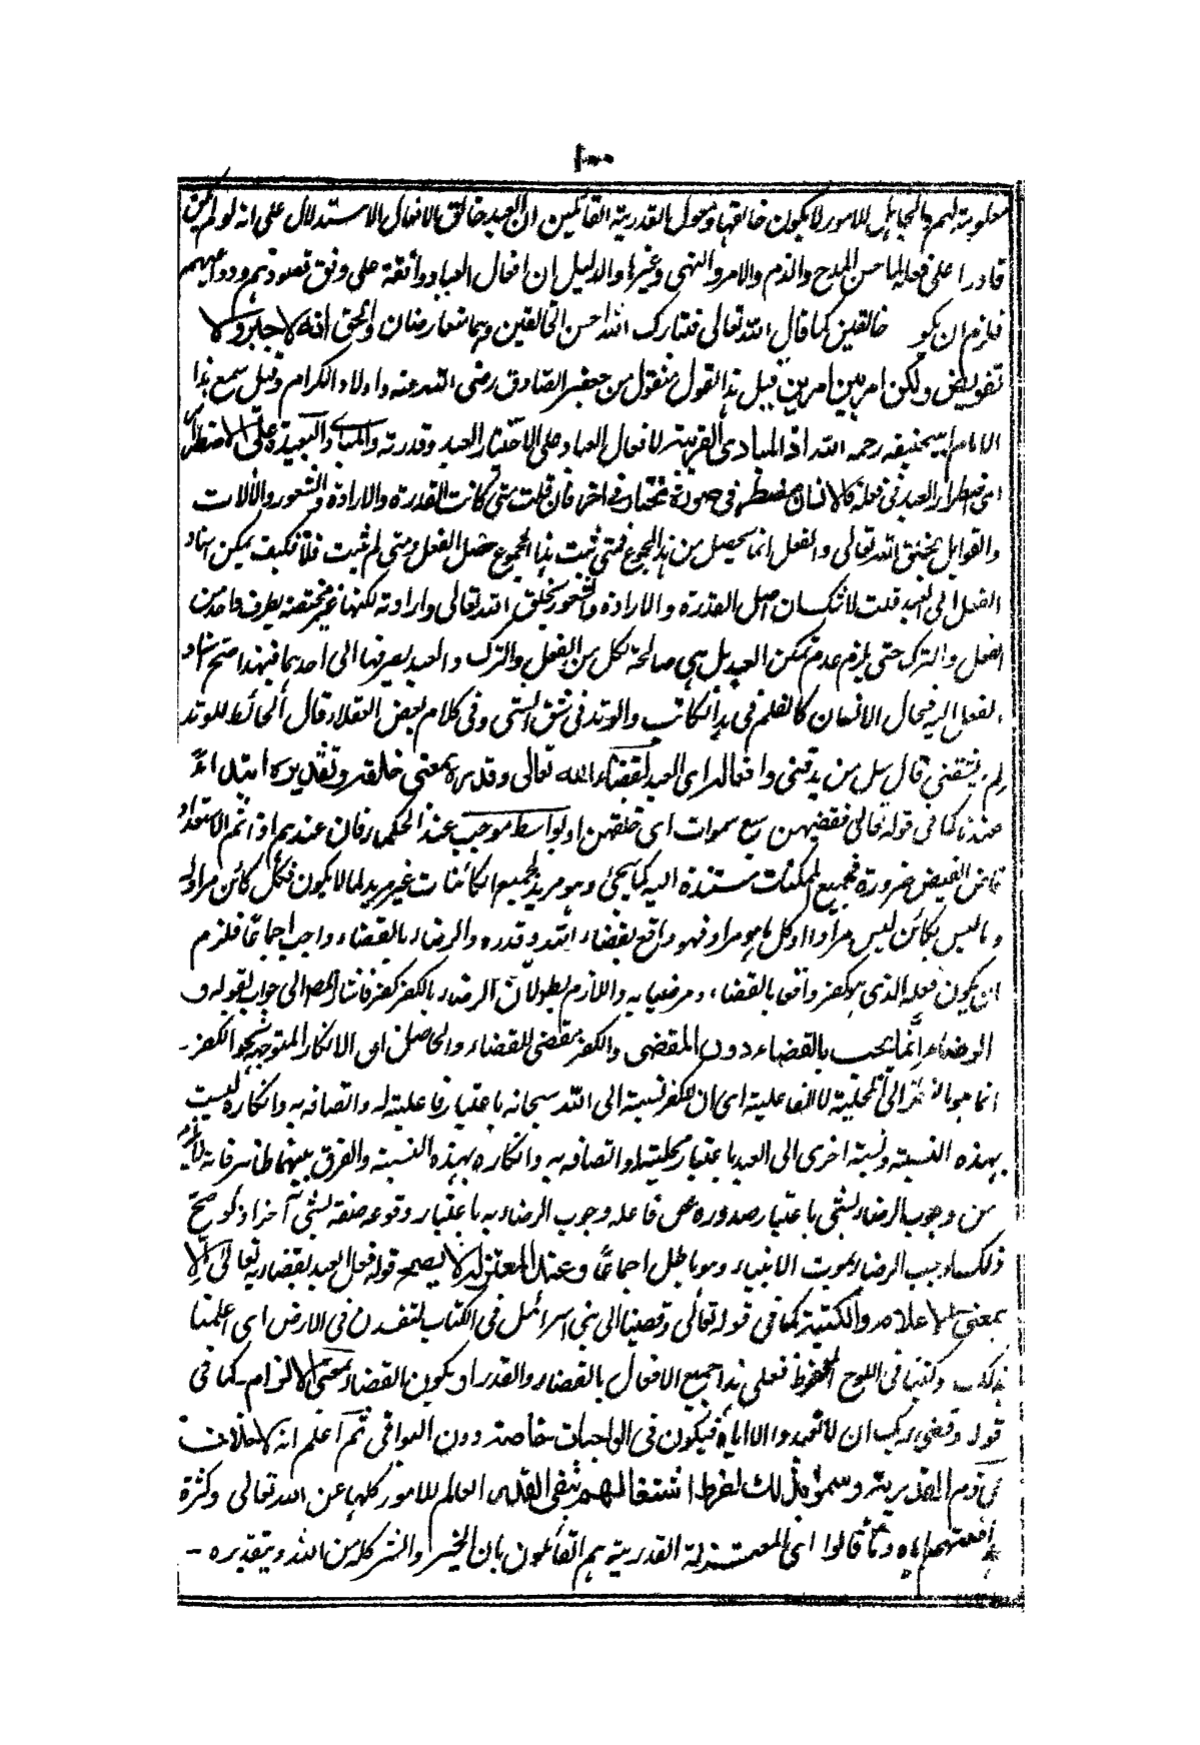 ١٠٠
معلومة لهم والجاهل للامور لا يكون خالقها ومعول القدرية القائلين ان العبد خالق لافعاله الاستدلال على انه لو لم يكن
قادرا على فعله لما حسن المدح والذم والامر والنهى وغيرها والدليل ان افعال العباد واقعة على وفق قصودهم ودواعيهم
فلزم ان يكو خالقين كما قال الله تعالى فتبارك الله احسن الخالقين وهما متعارضان والحق انه لا جبر ولا
تفويض ولكن امر بين امرين قيل هذا القول منقول من جعفر الصادق رضى الله عنه واولاده الكرام وقيل سمع هذا
الامام ابيحنيفه رحمه الله اذ المبادى القريبة لافعال العباد على الاختيار العبد وقدرته والمبادى البعيدة على الاضطرار
اى اضطرار العبد فى فعله فالانسان مضطر فى صورة مختار فى اخر فان قلت متى كانت القدرة والارادة والشعور والآلات
والقوابل بخلق الله تعالى والفعل انما يحصل من هذا المجموع فمتى ثبت هذا المجموع حصل الفعل ومتى لم يثبت فلا فكيف يمكن اسناد
الفعل الى العبد قلت لا شك ان اصل القدرة والارادة والشعور بخلق الله تعالى وارادته لكنها غير مختصة بطرف واحد من
الفعل والترك حتى يلزم عدم تمكن العبد بل هى صالحة لكل من الفعل والترك والعبد يصرفها الى احدهما فبهذا صح اسناد
الفعل اليه فحال الانسان كالقلم فى يد الكاتب والوتد فى شق الشئ وفى كلام بعض العقلاء قال الحائط للوتد
لم تشقنى قال سل من يدقنى وافعاله اى العبد بقضاء الله تعالى وقدره بمعنى خلقه وتقديره ابتداء
عندنا كما فى قوله تعالى فقضيهن سبع سموات اى خلقهن او بواسط موجب عند الحكماء فان عندهم اذا تم الاستعداد
فاض الفيض ضرورة فجميع الممكنات مستندة اليه كما يجئ وهو مريد لجميع الكائنات غير مريد لما لا يكون فكل كائن مراد له
وما ليس بكائن ليس مرادا وكل ما هو مراد فهو واقع بقضاء الله وقدره والرضاء بالقضاء واجب اجماعا فلزم
ان يكون فعله الذى هو كفر واقعا بالقضاء ومرضيا به واللازم بطلان الرضاء بالكفر كفر فاشار المص الى جوابه بقوله و
الرضاء انما يجب بالقضاء دون المقضى والكفر مقضى للقضاء والحاصل ان الانكار المتوجه نحو الكفر
انما هو بالنظر الى المحلية لا الفاعلية اى ان للكفر نسبة الى الله سبحانه باعتبار فاعليته له واتصافه به وانكاره ليست
بهذه النسبة ونسبة اخرى الى العبد باعتبار محليته له واتصافه به وانكاره بهذه النسبة والفرق بينهما ظاهر فانه لا يلزم
من وجوب الرضاء بشئ باعتبار صدوره عن فاعله وجوب الرضاء به باعتبار وقوعه صفة لشئ آخر اذ لو صح
ذلك لوجب الرضاء بموت الانبياء وهو باطل اجماعا وعند المعتزلة لا يصح قوله فعل العبد بقضاء الله تعالى الا
بمعنى الاعلام والكتبة كما فى قوله تعالى وقضينا الى بنى اسرائيل فى الكتاب لتفسدن فى الارض اى اعلمنا
بذلك وكتبنا فى اللوح المحفوظ فعلى هذا جميع الافعال بالقضاء والقدر او يكون القضاء بمعنى الالزام كما فى
قوله وقضى ربك ان لا تعبدوا الا اياه فيكون فى الواجبات خاصة دون البواقى ثم اعلم انه لا خلاف
فى ذم القدرية وسموا بذلك لفرط اشتغالهم بنفى القدر العالم للامور كلها عن الله تعالى وكثرة
قالوا اى المعتزلة القدرية هم القائلون بان الخير والشر كله من الله وبتقديره